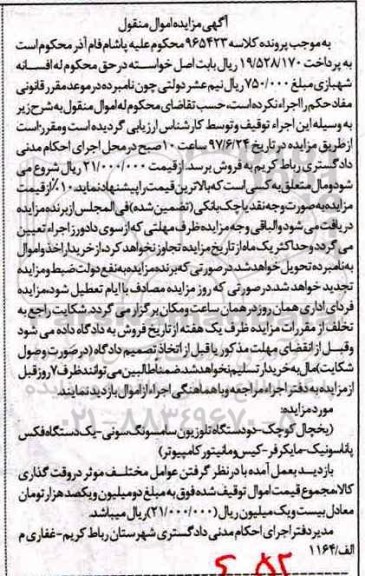 آگهی مزایده اموال منقول
به موجب پرونده کلاسه ۹۶۵۴۲۳ محکوم علیه پاشام فام آذر محکوم است
به پرداخت ۱۹/۵۲۸/۱۷۰ ریال بابت اصل خواسته در حق محکوم له افسانه
شهبازی مبلغ ۷۵۰/۰۰۰ ریال نیم عشر دولتی چون نامبرده در موعد مقرر قانونی
مفاد حکم را اجراء نکرده است، حسب تقاضای محکوم له اموال منقول به شرح زیر
به وسیله این اجراء توقیف و توسط کارشناس ارزیابی گردیده است و مقرر است
از طریق مزایده در تاریخ ۹۷/۶/۲۴ ساعت ۱۰ صبح در محل اجرای احکام مدنی
دادگستری رباط کریم به فروش برسد. از قیمت ۲۱/۰۰۰/۰۰۰ ریال شروع می
شود و مال متعلق به کسی است که بالاترین قیمت را پیشنهاد نماید ۱۰٪ از قیمت
مزایده به صورت وجه نقد یا چک بانکی (تضمین شده) فی المجلس از برنده مزایده
دریافت می شود و الباقی وجه مزایده ظرف مهلتی که از سوی دادورز اجراء تعیین
می گردد و حداکثر یک ماه از تاریخ مزایده تجاوز نخواهد کرد، از خریدار اخذ و اموال
به نامبرده تحویل خواهد شد. در صورتی که برنده مزایده به نفع دولت ضبط و مزایده
تجدید خواهد شد. در صورتی که روز مزایده مصادف با ایام تعطیل شود، مزایده
فردای اداری همان روز در همان ساعت و مکان برگزار می گردد. شکایت راجع به
تخلف از مقررات مزایده ظرف یک هفته از تاریخ فروش به دادگاه داده می شود
و قبل از انقضای مهلت مذکور یا قبل از اتخاذ تصمیم دادگاه (در صورت وصول
شکایت) مال به خریدار تسلیم نخواهد شد. ضمنا طالبین می توانند ظرف ۷ روز قبل
از مزایده به دفتر اجراء مراجعه و با هماهنگی اجراء از اموال بازدید نمایند.
مورد مزایده:
(یخچال کوچک-دو دستگاه تلوزیون سامسونگ سونی-یک دستگاه فکس
پاناسونیک-مایکرفر-کیس و مانیتور کامپیوتر)
بازدید بعمل آمده با در نظر گرفتن عوامل مختلف موثر در وقت گذاری
کالا مجموع قیمت اموال توقیف شده فوق به مبلغ دو میلیون و یکصد هزار تومان
معادل بیست و یک میلیون ریال (۲۱/۰۰۰/۰۰۰) ریال میباشد.
مدیر دفتر اجرای احکام مدنی دادگستری شهرستان رباط کریم-غفاری م
الف/۱۱۶۴
۰۲۱-۸۸۳۴۹۶۷۰